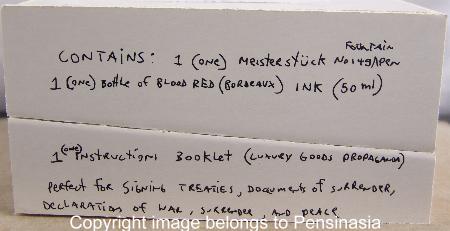 CONTAINS: 1 (ONE) MEISTERSTÜCK No149/PEN
FOUNTAIN
1 (ONE) BOTTLE OF BLOOD RED (BORDEAUX) INK (50 ml)
1 (ONE) INSTRUCTIONS BOOKLET (LUXURY GOODS PROPAGANDA)
PERFECT FOR SIGNING TREATIES, DOCUMENTS OF SURRENDER,
DECLARATION OF WAR, SURRENDER, AND PEACE
Copyright image belongs to Pensinasia